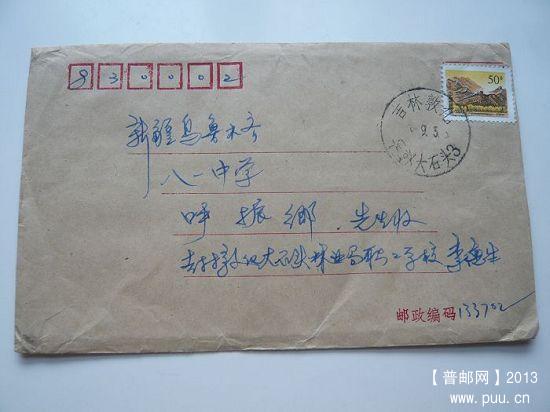 830002
50分
吉林敦
9.3
大石头3
新疆乌鲁木齐
八一中学
呼振乡 先生收
吉林敦化大石头林业局职工学校 李德生
邮政编码 133702
【普邮网】2013
www.puu.cn